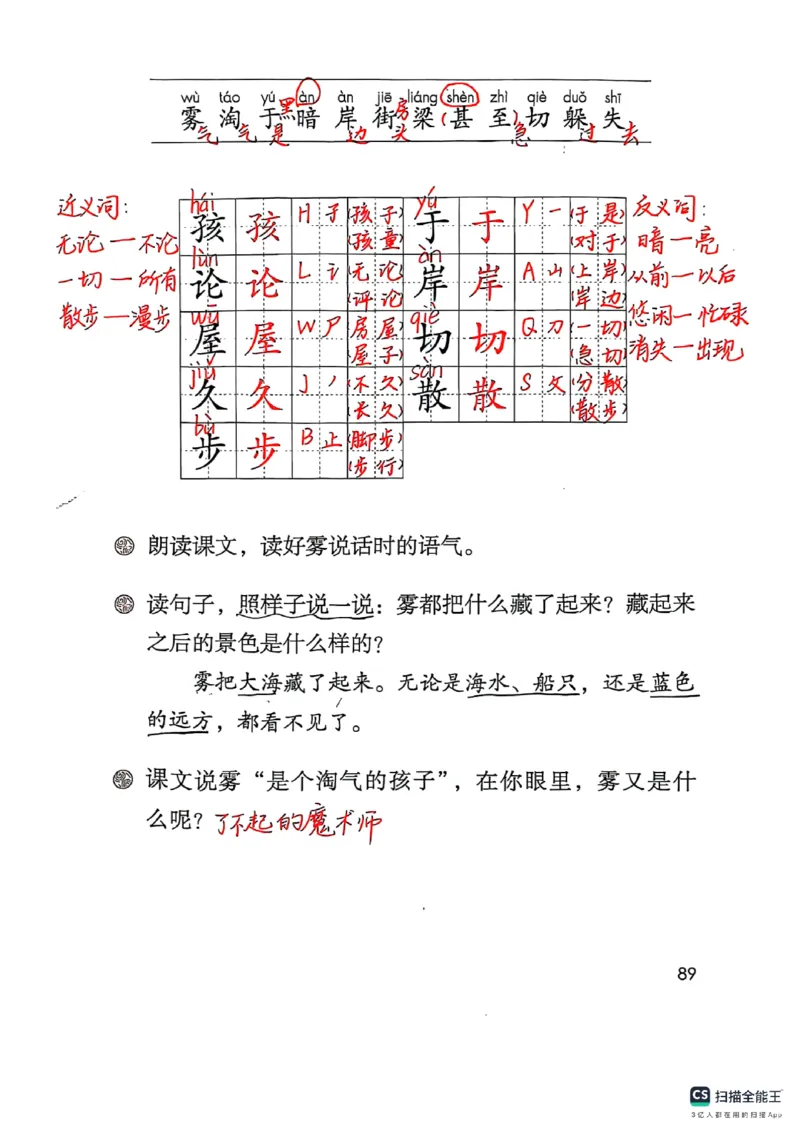 wù táo yú àn àn jiē liáng shèn zhì qiè duǒ shī
雾 淘 于 黑暗 岸 街 房梁 (甚 至) 切 躲 失
气 气 是 边 头 急 过 去
近义词:
无论—不论
一切—所有
散步—漫步
hái 孩 孩 H 子 (孩子) (孩童)
yú 于 于 Y 一 (于是) (对于)
lùn 论 论 L 讠 (无论) (评论)
àn 岸 岸 A 山 (上岸) (岸边)
wū 屋 屋 W 尸 (房屋) (屋子)
qiè 切 切 Q 刀 (一切) (急切)
jiǔ 久 久 J 丿 (不久) (长久)
sàn 散 散 S 攵 (分散) (散步)
bù 步 步 B 止 (脚步) (步行)
反义词:
暗—亮
从前—以后
悠闲—忙碌
消失—出现
朗读课文，读好雾说话时的语气。
读句子，照样子说一说：雾都把什么藏了起来？藏起来
之后的景色是什么样的？
雾把大海藏了起来。无论是海水、船只，还是蓝色
的远方，都看不见了。
课文说雾“是个淘气的孩子”，在你眼里，雾又是什
么呢？了不起的魔术师
89
CS 扫描全能王
3亿人都在用的扫描App